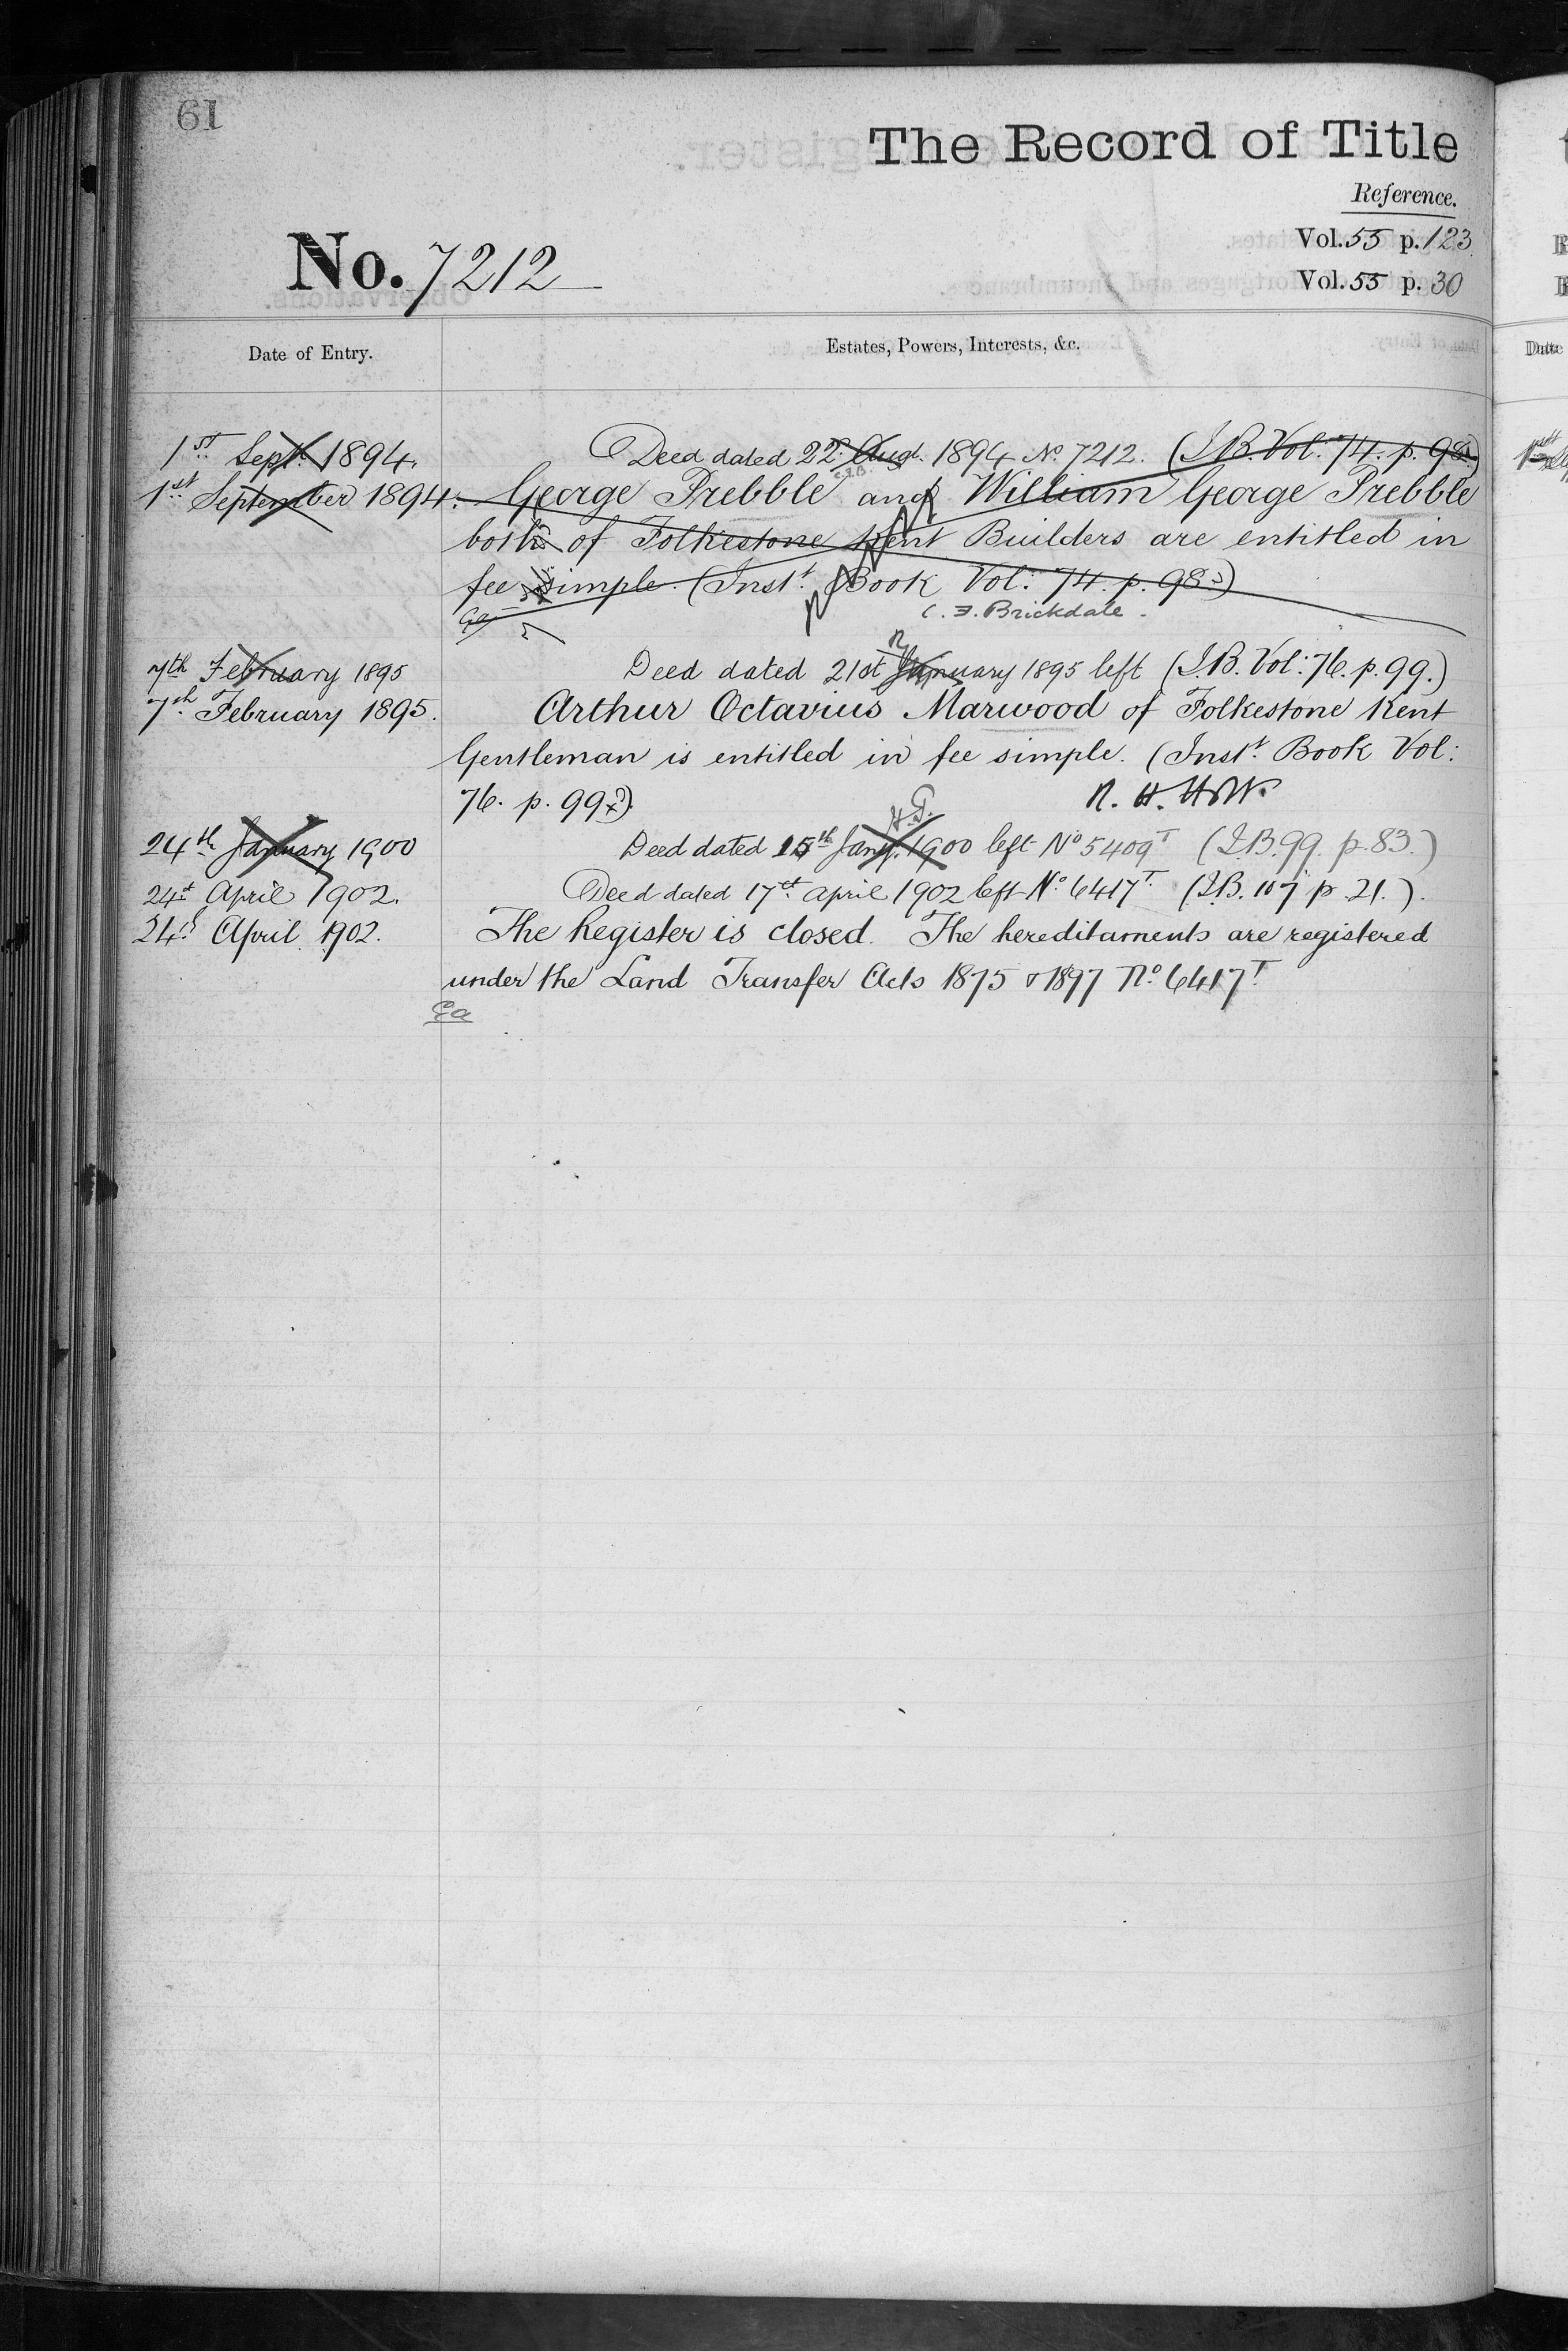 61
The Record of Title
Reference.
Vol. 55 p. 123
No. 7212
Vol. 55 p. 30
Date of Entry.
Estates, Powers, Interests, &c.
1st Sept. 1894. Deed dated 22 Aug. 1894 No. 7212. (I.B. Vol. 74. p. 98.)
1st September 1894. George Prebble and William George Prebble
both of Folkestone Kent Builders are entitled in
fee simple. (Inst. Book Vol: 74. p. 98.)
C. F. Brickdale.
7th February 1895 Deed dated 21st January 1895 left (I.B. Vol: 76. p. 99.)
7th February 1895. Arthur Octavius Marwood of Folkestone Kent
Gentleman is entitled in fee simple. (Inst. Book Vol:
76. p. 99.)
24th January 1900 Deed dated 15th Jany. 1900 left No 5409T (I.B. 99. p. 83.)
24th April 1902. Deed dated 17th April 1902 left No. 6417T. (I.B. 107 p. 21.).
24th April 1902. The Register is closed. The hereditaments are registered
under the Land Transfer Acts 1875 & 1897 No. 6417T